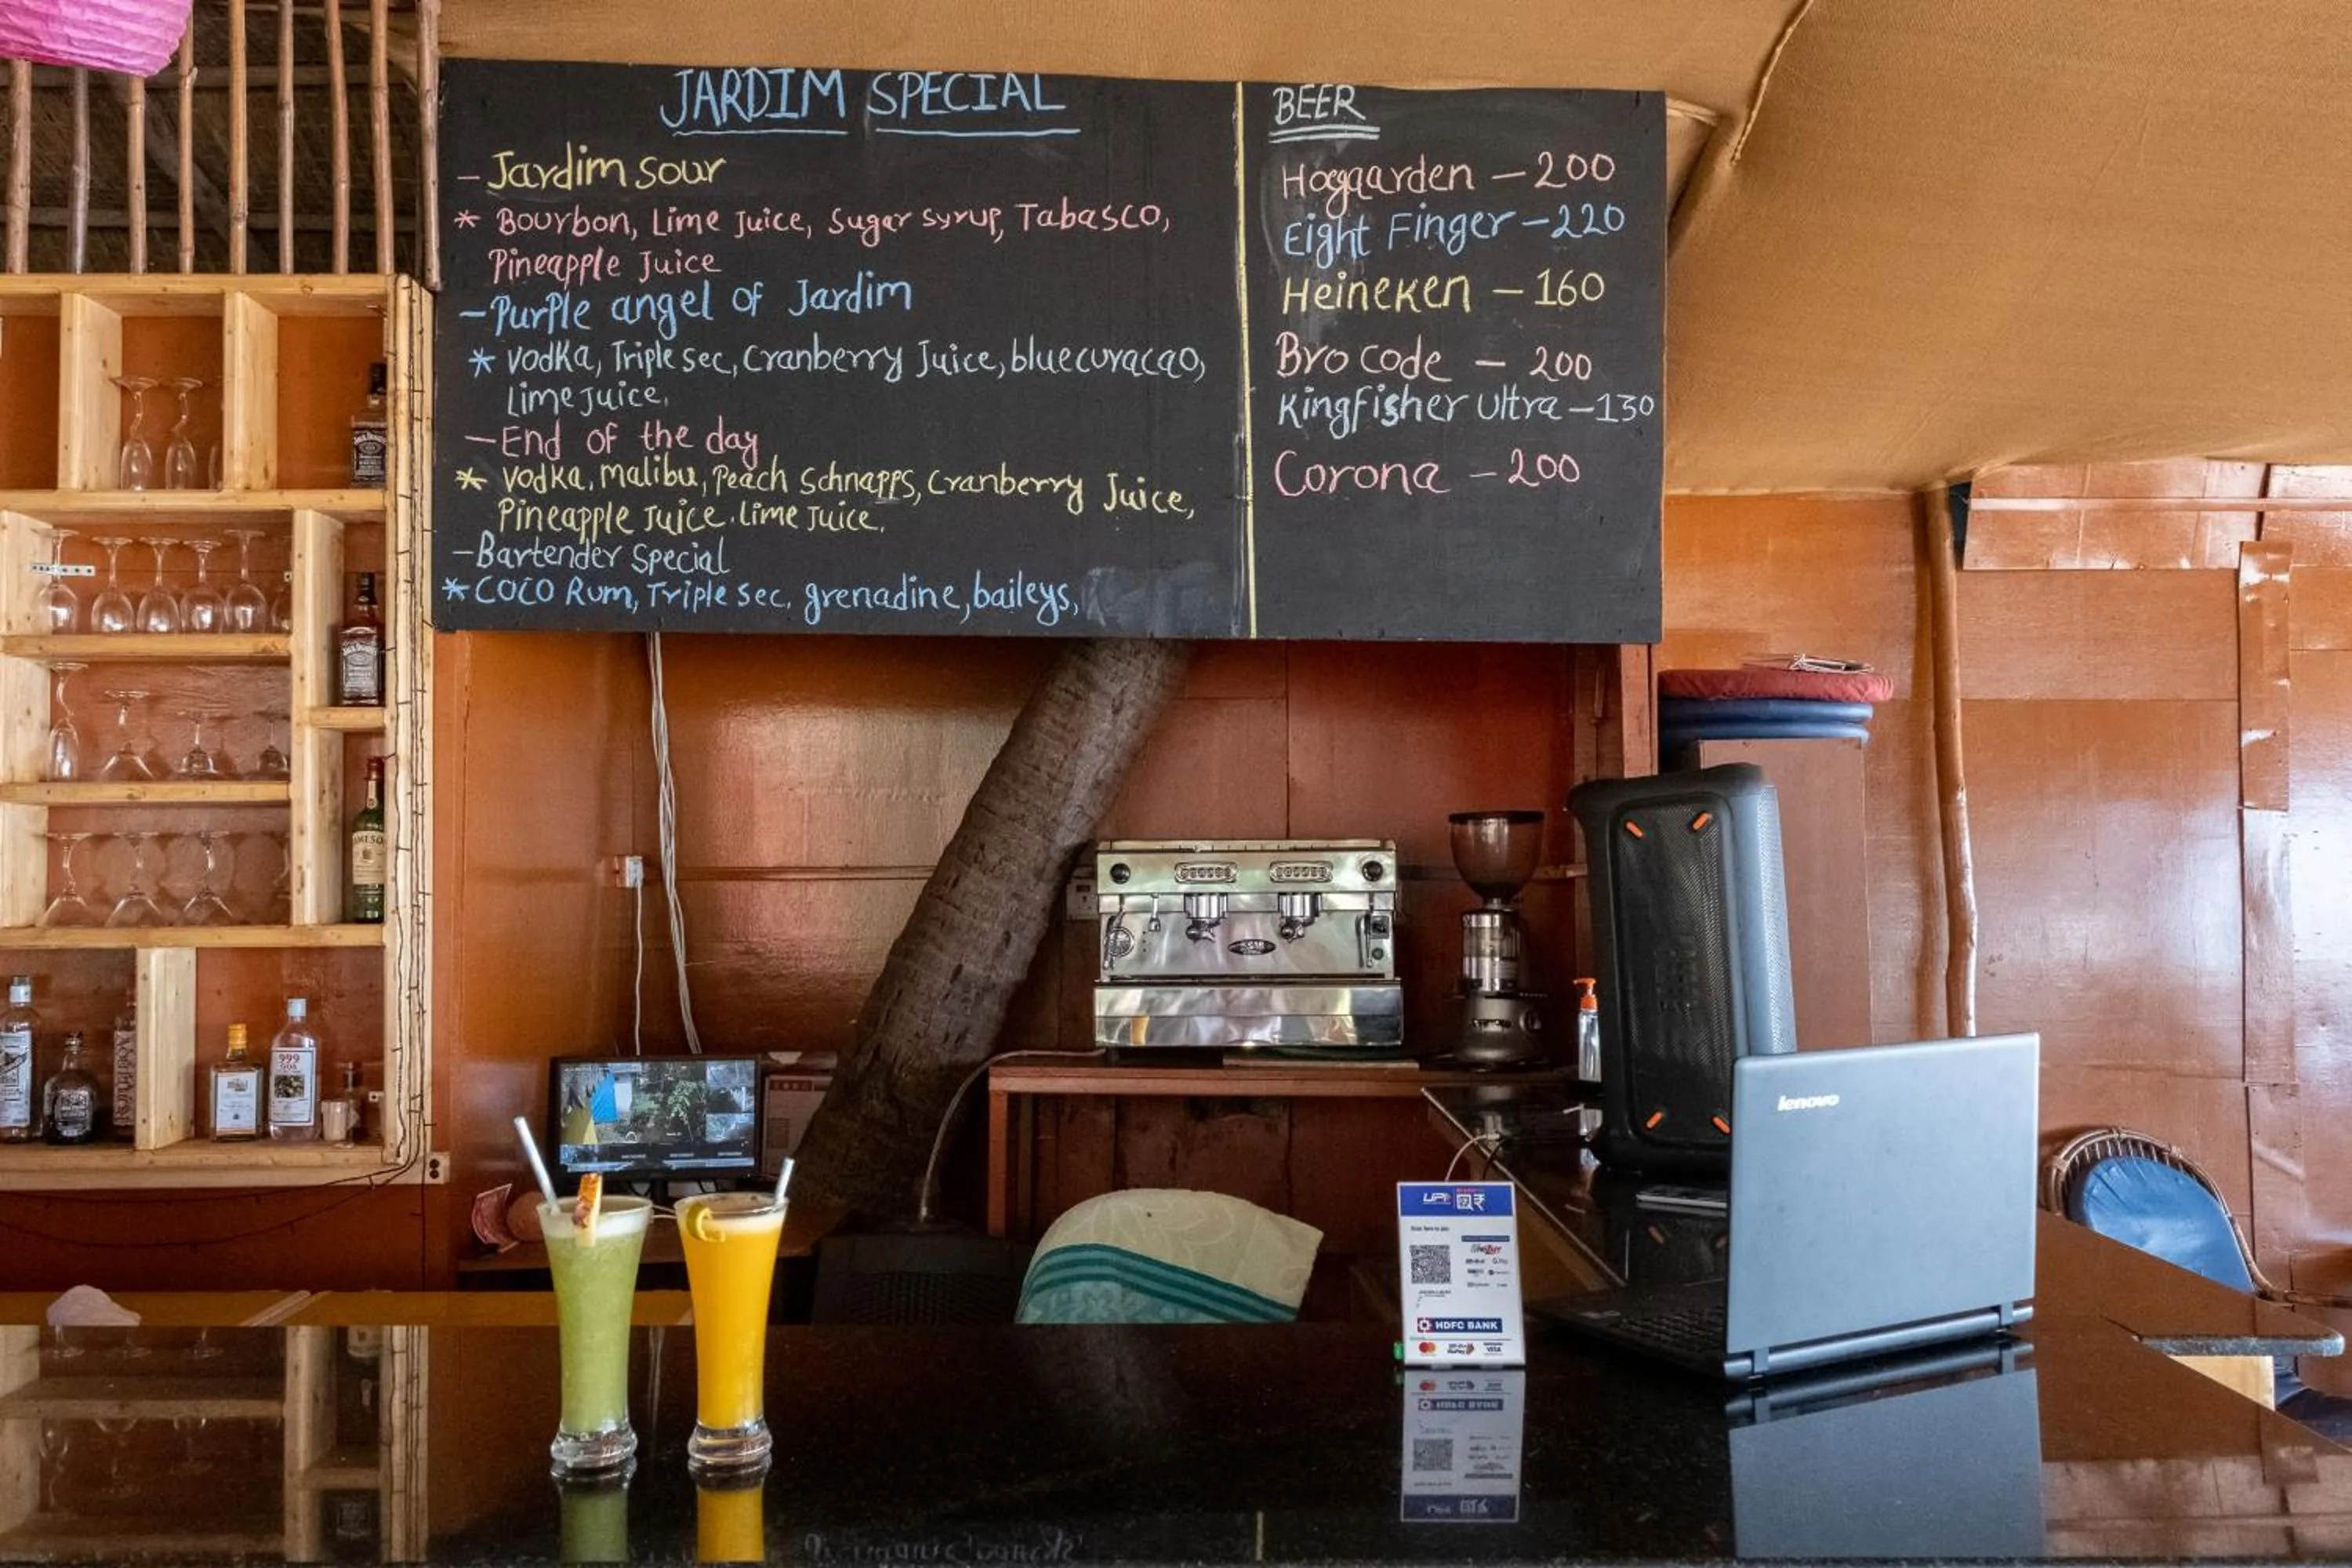 JARDIM SPECIAL
- Jardim sour
* Bourbon, Lime Juice, Sugar syrup, Tabasco,
Pineapple Juice
- Purple angel of Jardim
* vodka, Triple sec, Cranberry Juice, bluecuracao,
Lime Juice.
- End of the day
* vodka, Malibu, Peach Schnapps, Cranberry Juice,
Pineapple Juice. Lime Juice.
- Bartender Special
* COCO Rum, Triple sec, grenadine, baileys,
BEER
Hoegaarden - 200
Eight Finger - 220
Heineken - 160
Bro code - 200
Kingfisher Ultra - 130
Corona - 200
JAMESON
999
GOA
lenovo
UPI
HDFC BANK
VISA